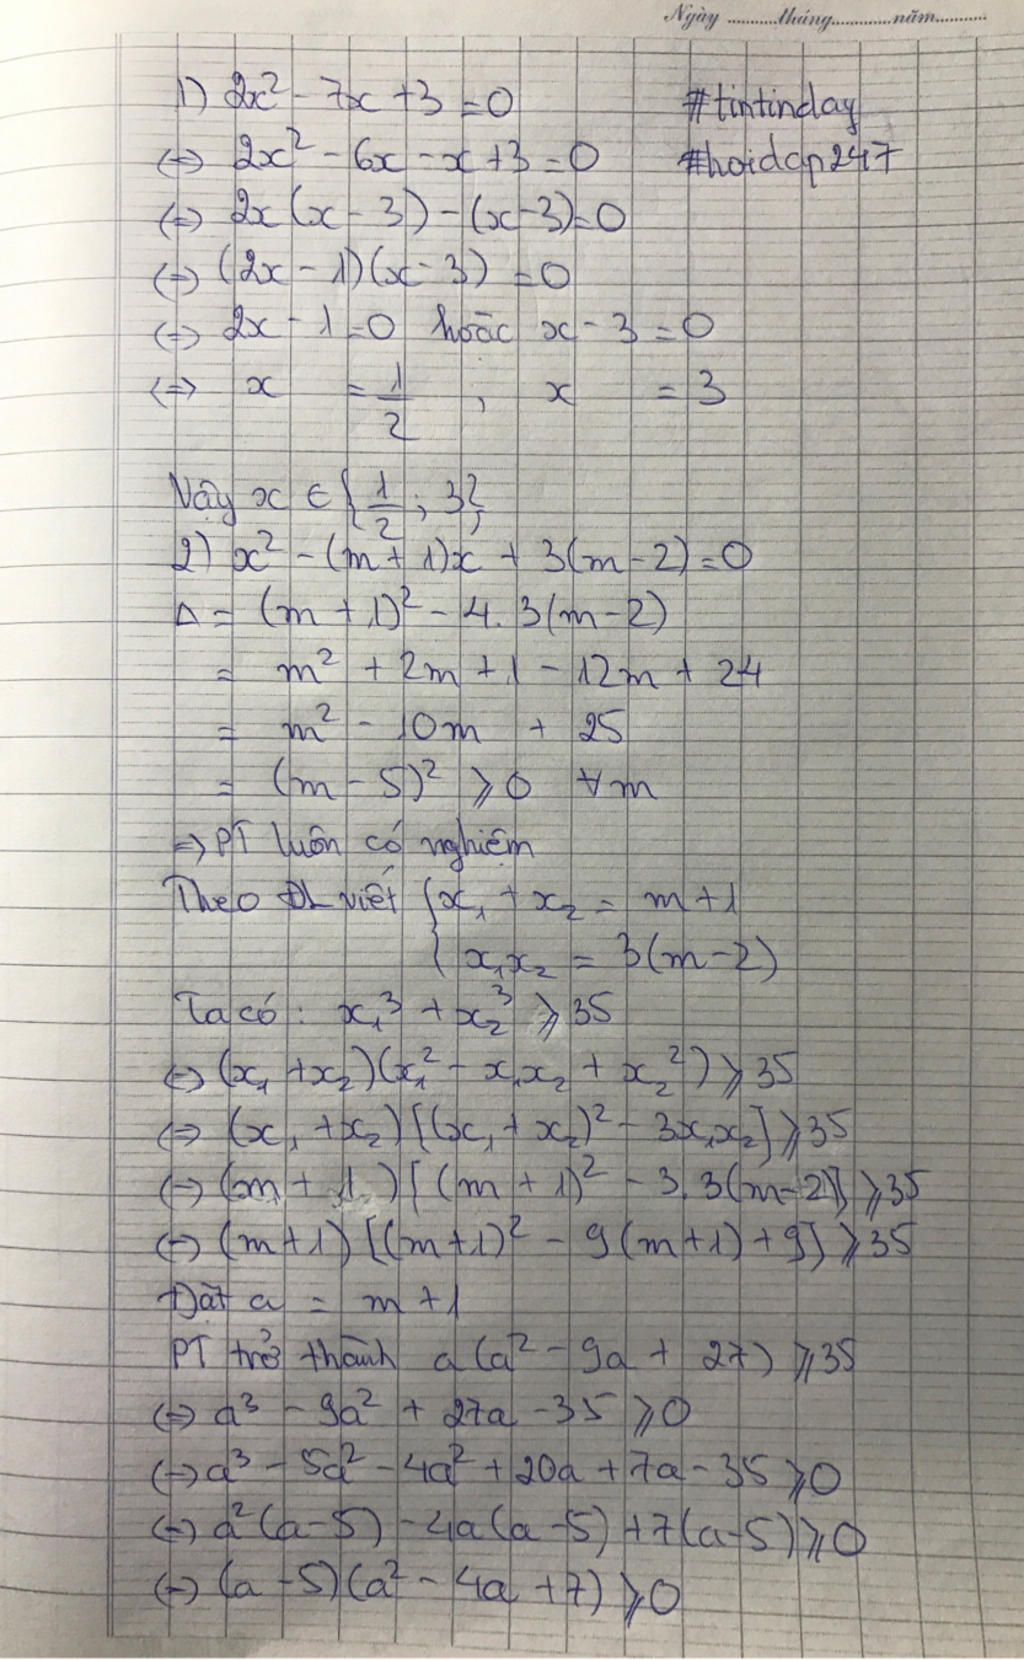 Ngày ...........tháng.............năm...........
1) 2x² - 7x + 3 = 0 #tintinday
<=> 2x² - 6x - x + 3 = 0 #hoidap247
<=> 2x(x - 3) - (x - 3) = 0
<=> (2x - 1)(x - 3) = 0
<=> 2x - 1 = 0 hoặc x - 3 = 0
<=> x = 1/2 , x = 3
Vậy x ∈ {1/2 ; 3}
2) x² - (m + 1)x + 3(m - 2) = 0
Δ = (m + 1)² - 4. 3(m - 2)
= m² + 2m + 1 - 12m + 24
= m² - 10m + 25
= (m - 5)² ⩾ 0 ∀m
=> PT luôn có nghiệm
Theo ĐL viét { x₁ + x₂ = m + 1
{ x₁x₂ = 3(m - 2)
Ta có : x₁³ + x₂³ ⩾ 35
<=> (x₁ + x₂)(x₁² - x₁x₂ + x₂²) ⩾ 35
<=> (x₁ + x₂)[(x₁ + x₂)² - 3x₁x₂] ⩾ 35
<=> (m + 1)[(m + 1)² - 3. 3(m - 2)] ⩾ 35
<=> (m + 1)[(m + 1)² - 9(m + 1) + 9] ⩾ 35
Đặt a = m + 1
PT trở thành a(a² - 9a + 27) ⩾ 35
<=> a³ - 9a² + 27a - 35 ⩾ 0
<=> a³ - 5a² - 4a² + 20a + 7a - 35 ⩾ 0
<=> a²(a - 5) - 4a(a - 5) + 7(a - 5) ⩾ 0
<=> (a - 5)(a² - 4a + 7) ⩾ 0